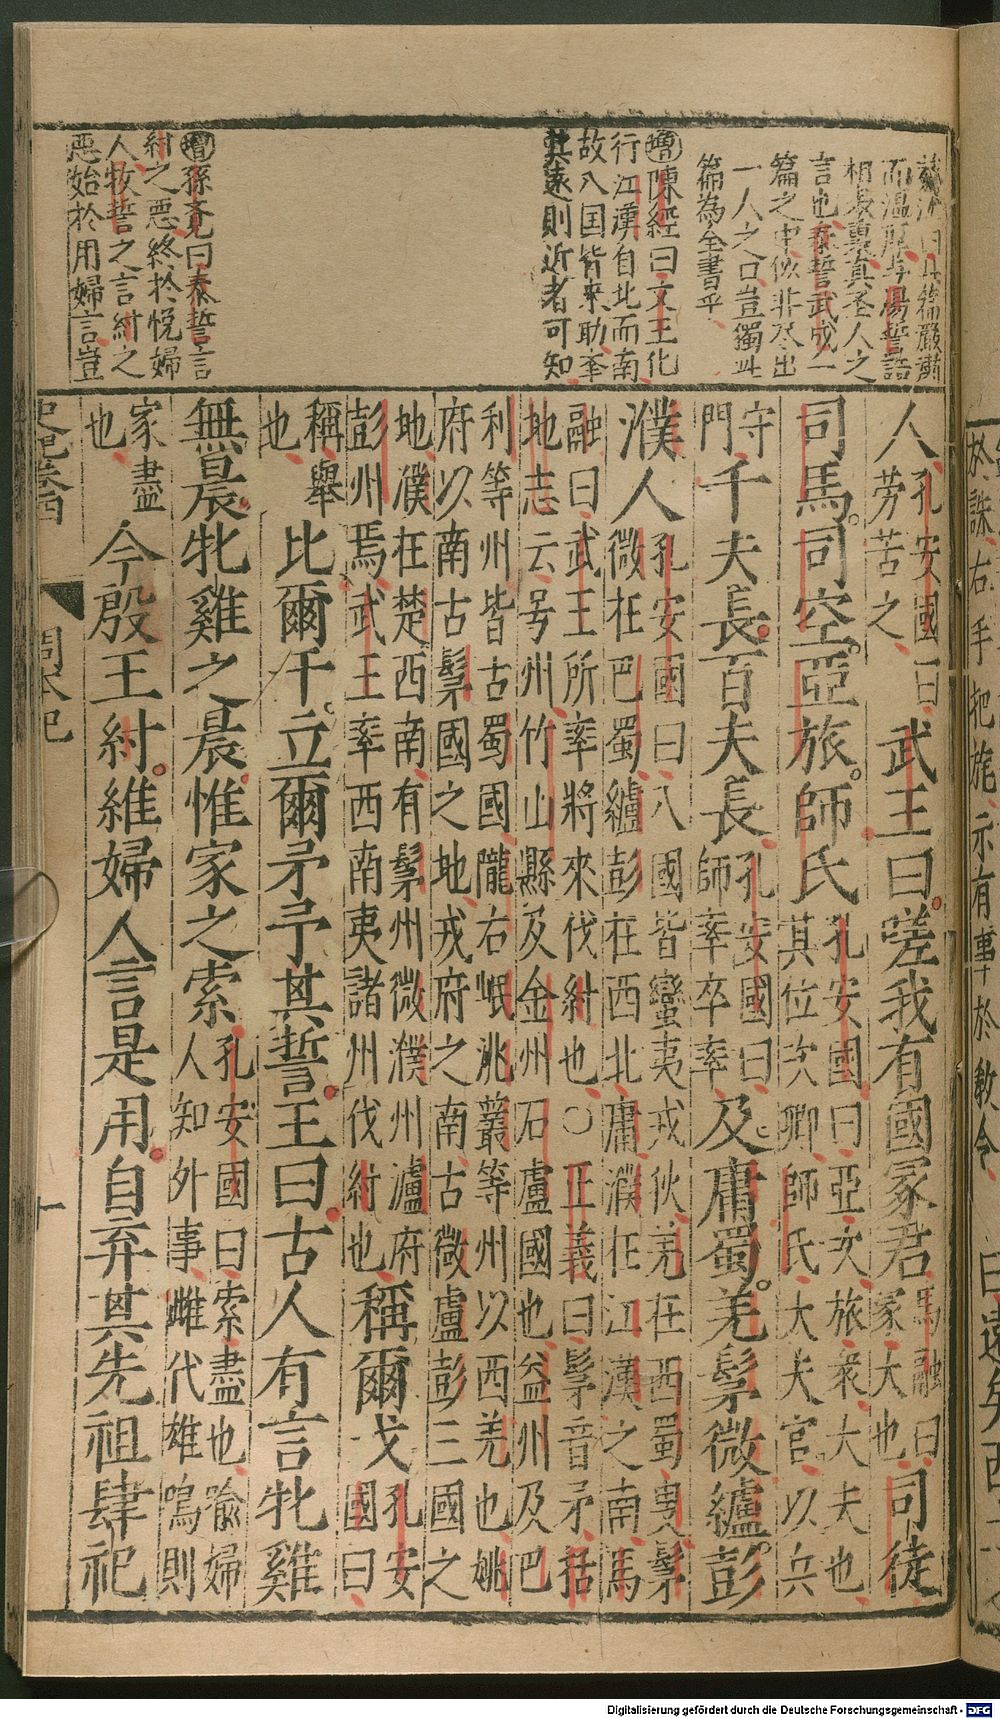 而溫厚與湯誓誥
相表裏真圣人之
言也泰誓武成一
篇之中似非尽出
一人之口豈獨此
篇為全書乎
增陳經曰文王化
行江漢自北而南
故八囯皆來助李
其遠則近者可知
增孫覺曰泰誓言
紂之惡終於悅婦
人牧誓之言紂之
惡始於用婦言豈
人孔安國曰
勞苦之武王曰嗟我有國冢君馬融曰
冢大也司徒
司馬司空亞旅師氏孔安國曰亞次旅衆大夫也
其位次卿師氏大夫官以兵
守
門千夫長百夫長孔安國曰
師率卒率及庸蜀羌髳微纑彭
濮人孔安國曰八國皆蠻夷戎伙羌在西蜀叟髳
微在巴蜀纑彭在西北庸濮在江漢之南馬
融曰武王所率將來伐紂也〇正義曰髳音矛括
地志云号州竹山縣及金州石盧國也益州及巴
利等州皆古蜀國隴右岷洮叢等州以西羌也姚
府以南古髳國之地戎府之南古微盧彭三國之
地濮在楚西南有髳州微濮州瀘府
彭州焉武王率西南夷諸州伐紂也稱爾戈孔安
國曰
稱舉
也比爾干立爾矛予其誓王曰古人有言牝雞
無晨牝雞之晨惟家之索孔安國曰索盡也喻婦
人知外事雌代雄鳴則
家盡
也今殷王紂維婦人言是用自弃其先祖肆祀
史記卷四 周本紀 十
於誅右手把旄示有事於敎令
曰遠矣西土
Digitalisierung gefördert durch die Deutsche Forschungsgemeinschaft - DFG